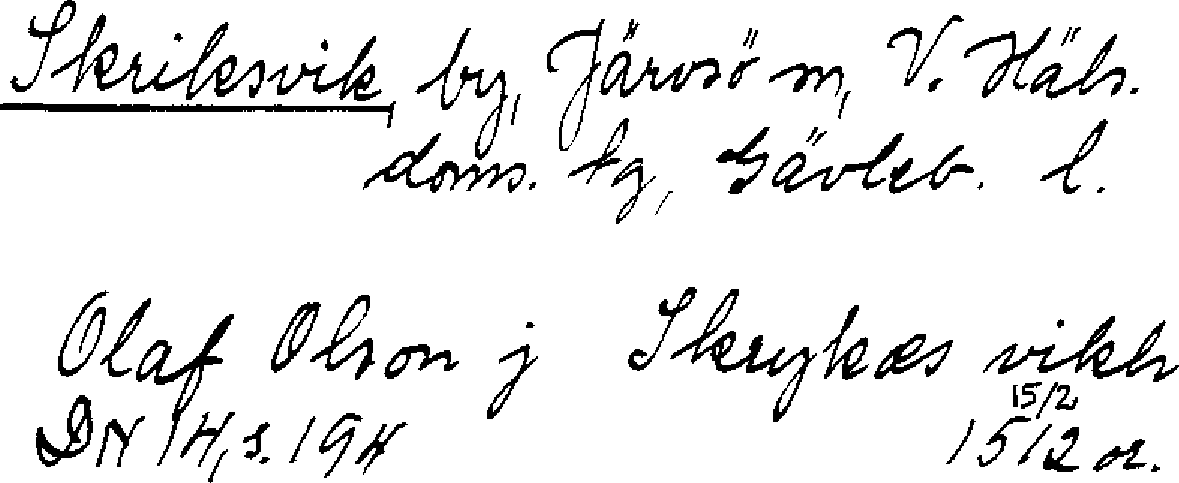 Skriksvik, by, Järvsö sn, V. Häls.
doms. tg, Gävleb. l.
Olaf Olson j Skrykæs vikh
15/2
DN 14, s. 194 1512 or.